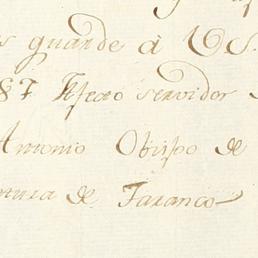 guarde à VS.
87 Afecto servidor
Antonio Obispo de
de Taranco